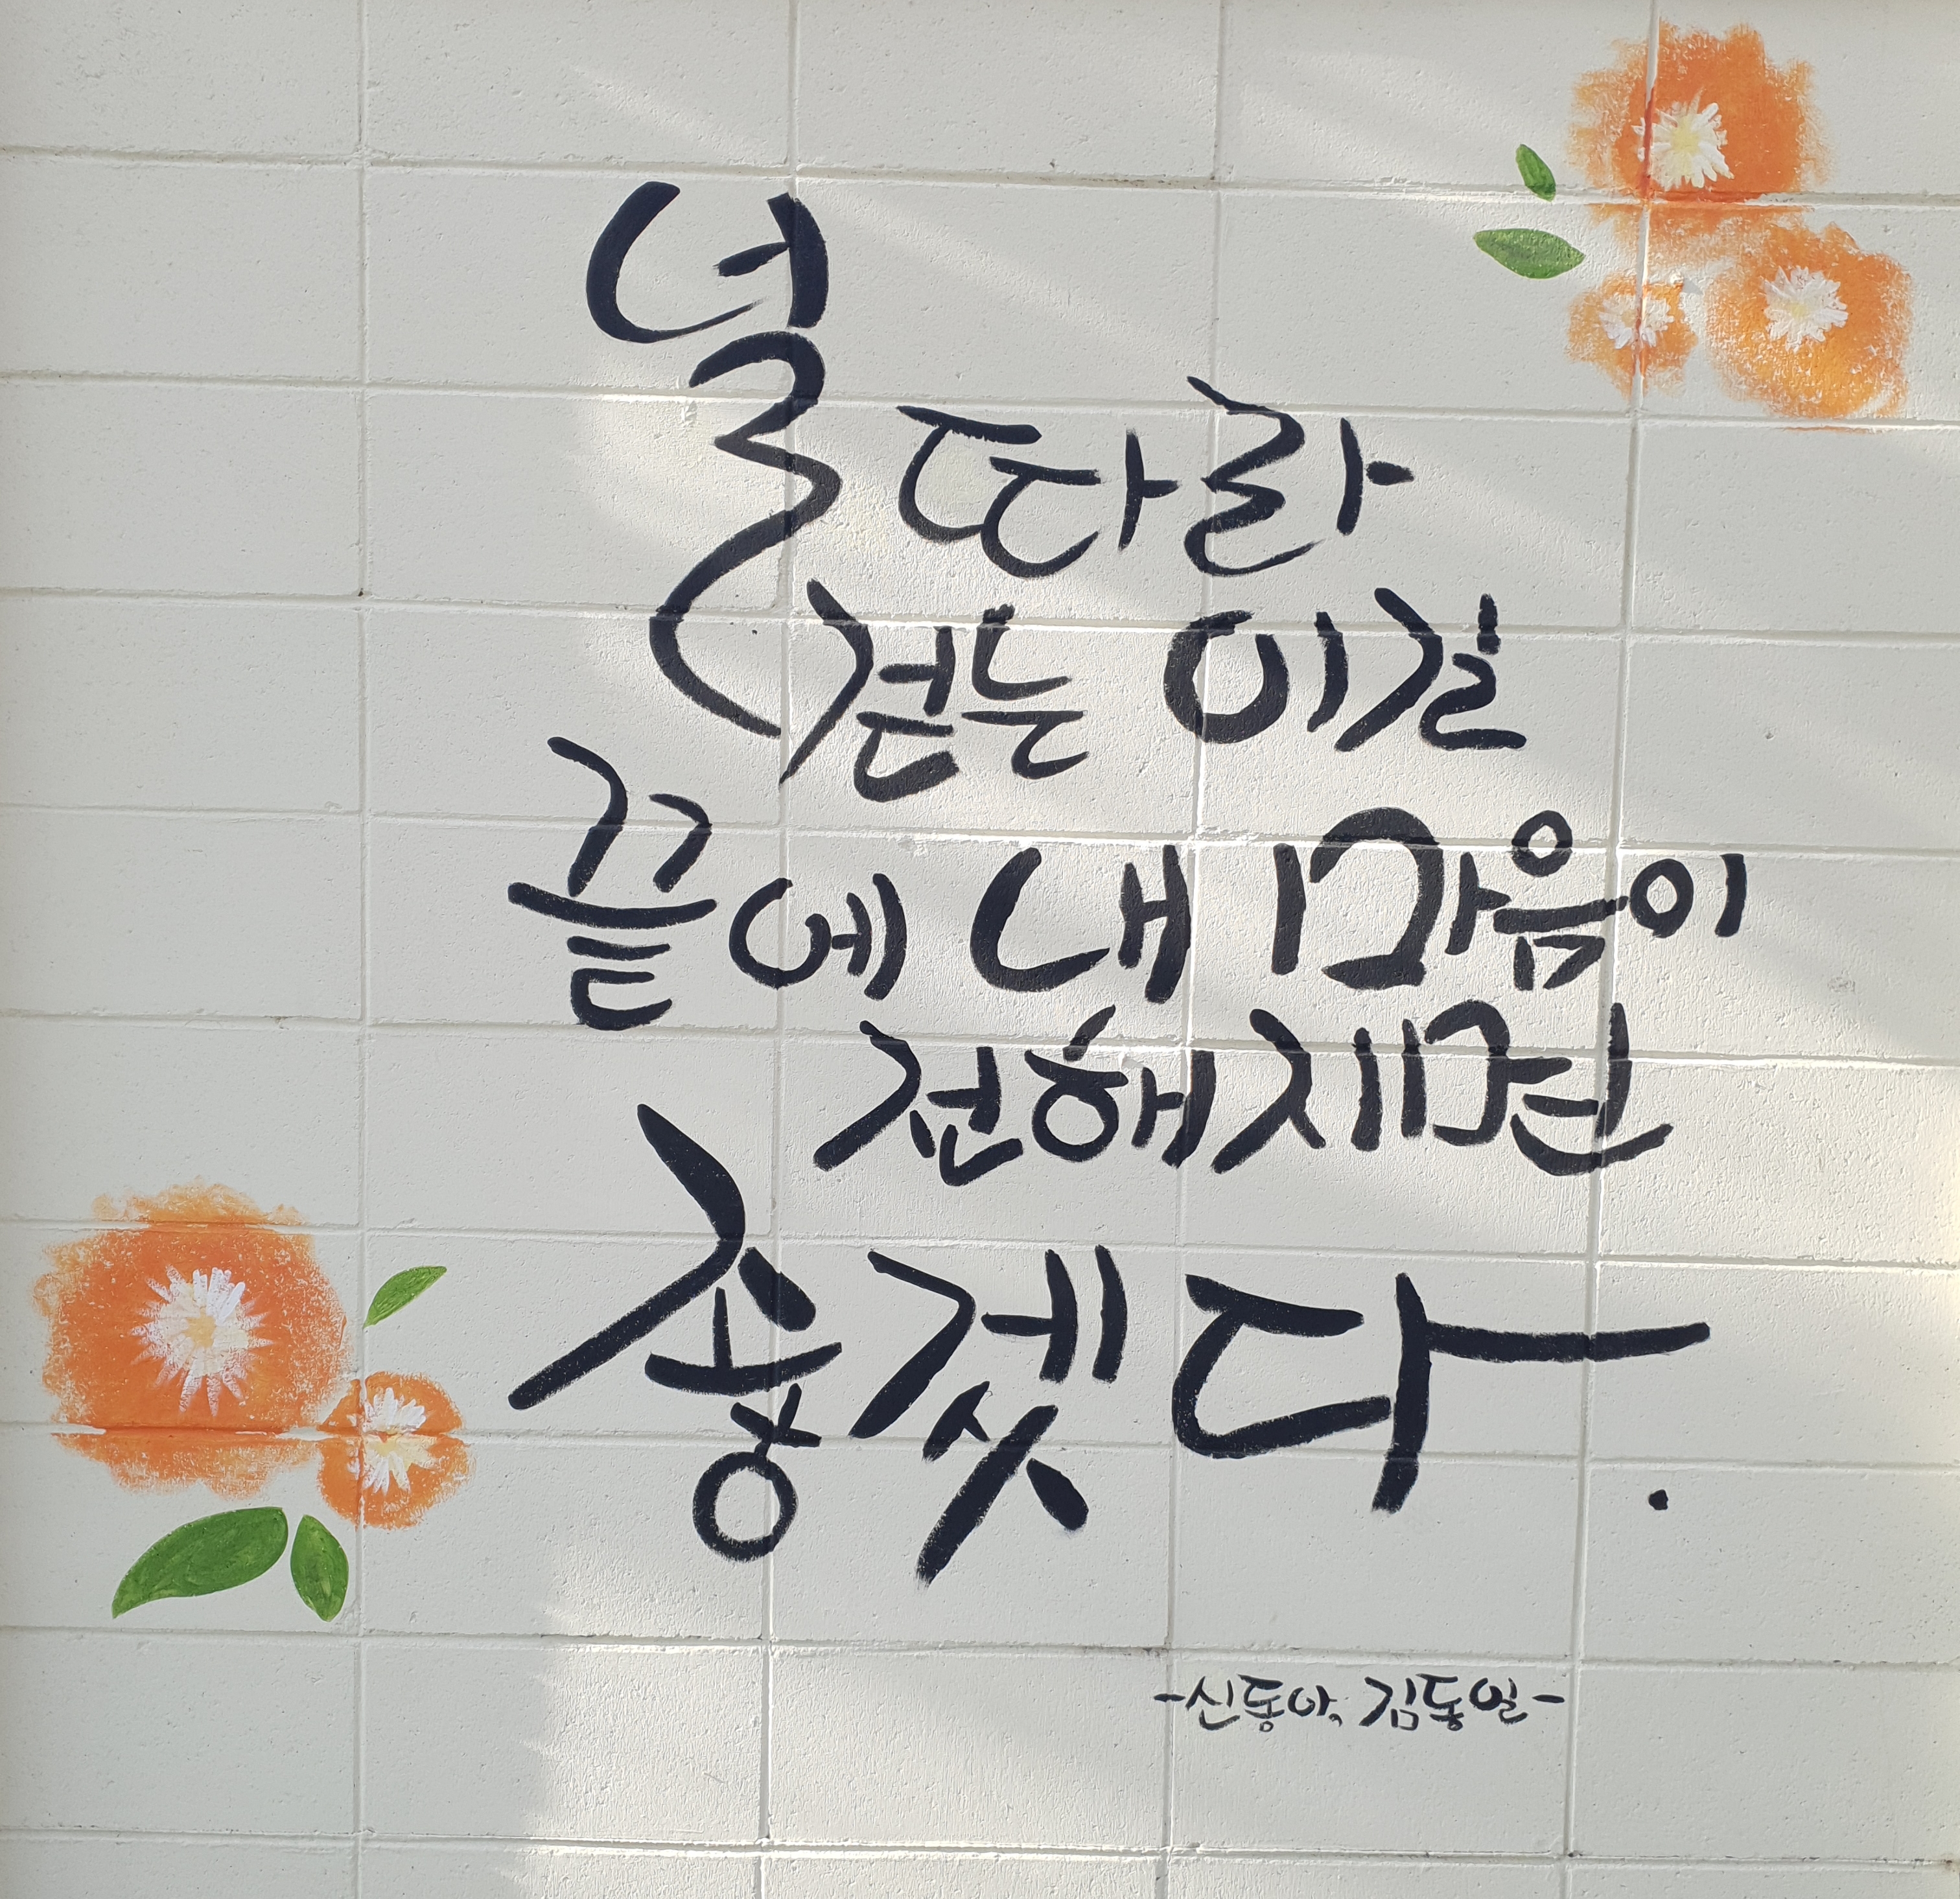 널 따라
걷는 이길
끝에 내 마음이
전해지면
송겟다.
-신동아, 김동일-